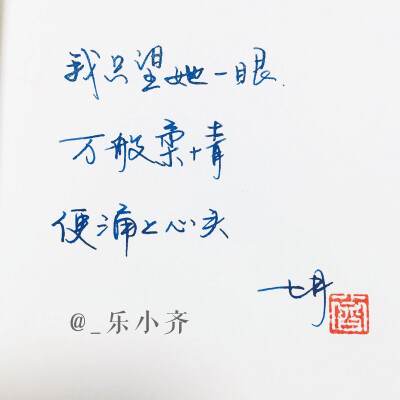 我只望她一眼.
万般柔情
便涌上心头
七月
@_乐小齐